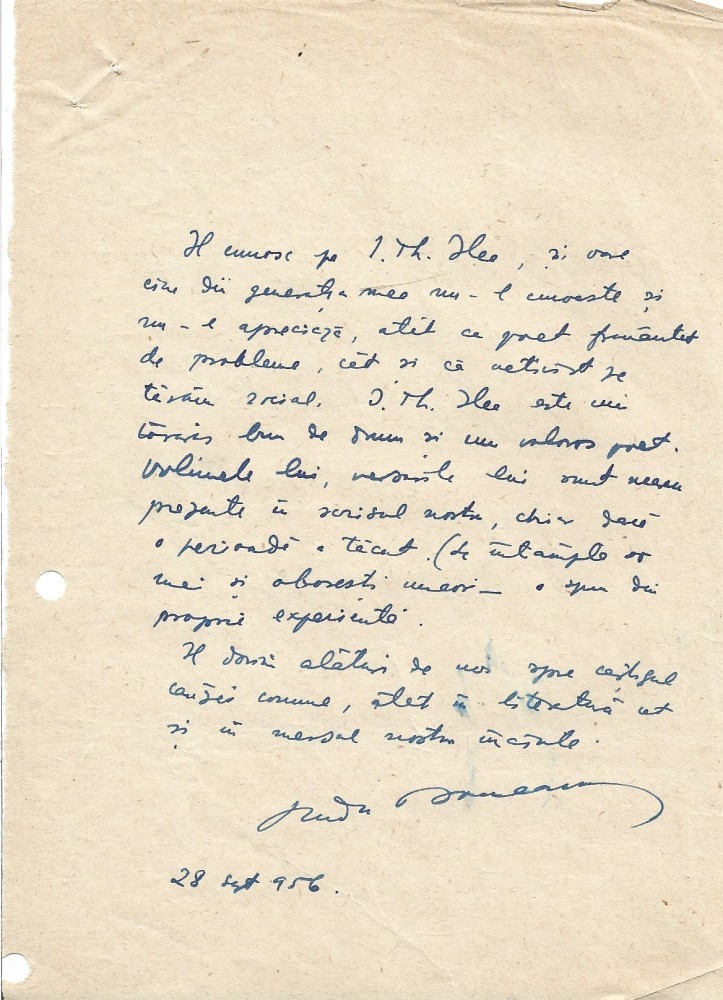 Îl cunosc pe I. Th. Ilea, și oare
cine din generația mea nu-l cunoaște și
nu-l apreciază, atît ca poet frământat
de probleme, cît și ca activist pe
tărâm social. I. Th. Ilea este un
tovarăș bun de drum și un valoros poet.
Volumele lui, versurile lui sunt mereu
prezente în scrisul nostru, chiar dacă
o perioadă a tăcut. (Se întâmplă să
mai și obosești uneori - o spun din
proprie experiență.
Îl dorim alături de noi spre câștigul
cauzei comune, atât în literatură cât
și în mersul nostru înainte.
Radu Boureanu
28 sept 956.